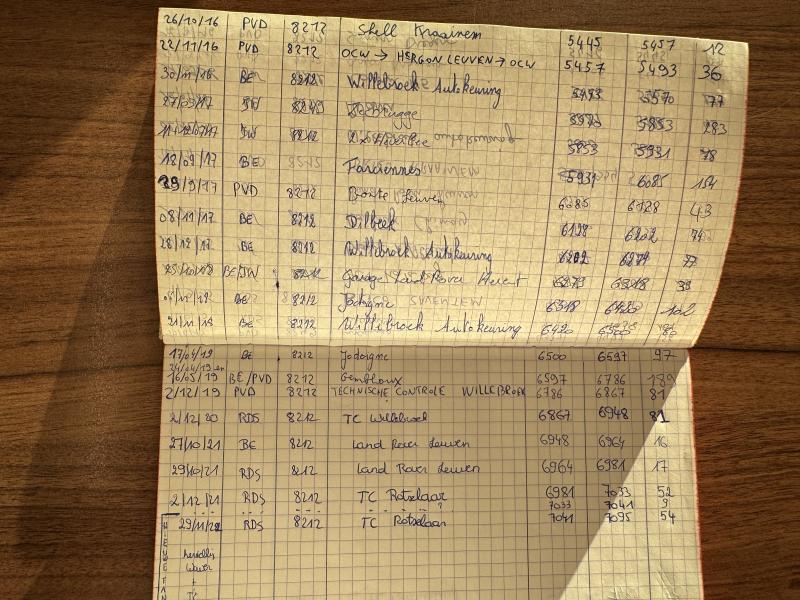 26/10/16 PVD 8212 Shell Kraainem 5445 5457 12
22/11/16 PVD 8212 OCW → HERGON LEUVEN → OCW 5457 5493 36
30/11/16 BE 8212 Willebroek Autokeuring 5493 5570 77
5570 5853 283
8212 5853 5931 78
12/09/17 BE 8212 Farciennes 5931 6085 154
29/9/17 PVD 8212 Leuven 6085 6128 43
08/11/17 BE 8212 Dilbeek 6128 6202 74
28/12/17 BE 8212 Willebroek Autokeuring 6202 6279 77
BE/JW 8212 Garage Land Rover Herent 6279 6318 39
BE 8212 Jodoigne 6318 6420 102
21/11/18 BE 8212 Willebroek Autokeuring 6420 6500 80
17/04/19 BE 8212 Jodoigne 6500 6597 97
24/04/19 en
16/05/19 BE/PVD 8212 Gembloux 6597 6786 189
2/12/19 PVD 8212 TECHNISCHE CONTROLE WILLEBROEK 6786 6867 81
2/12/20 RDS 8212 TC Willebroek 6867 6948 81
27/10/21 BE 8212 Land Rover Leuven 6948 6964 16
29/10/21 RDS 8212 Land Rover Leuven 6964 6981 17
2/12/21 RDS 8212 TC Rotselaar 6981 7033 52
... ... ... ? 7033 7041 9
29/11/22 RDS 8212 TC Rotselaar 7041 7095 54
+
TC